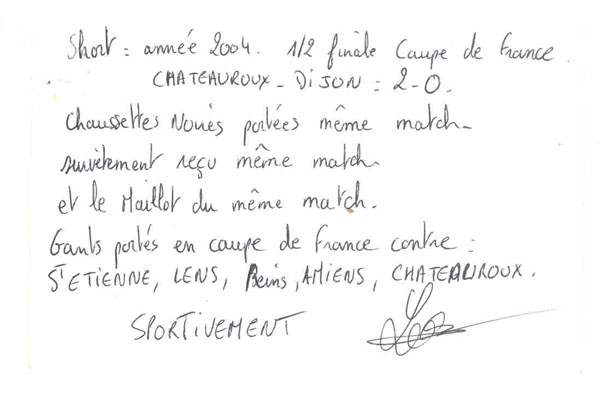 Short : année 2004. 1/2 finale Coupe de France
CHATEAUROUX - DIJON : 2-0.
chaussettes Noires portées même match.
survêtement reçu même match.
et le Maillot du même match.
Gants portés en coupe de France contre :
ST ETIENNE, LENS, Reims, AMIENS, CHATEAUROUX.
SPORTIVEMENT